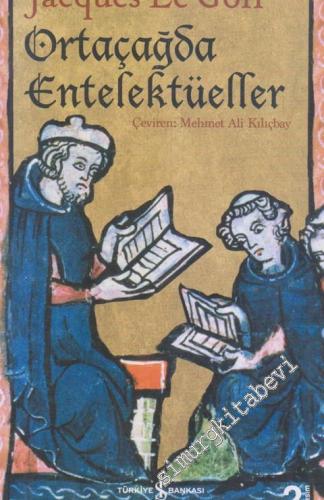 Jacques Le Goff
Ortaçağda
Entelektüeller
Çeviren: Mehmet Ali Kılıçbay
simurgkitabevi.com
TÜRKİYE İŞ BANKASI
2